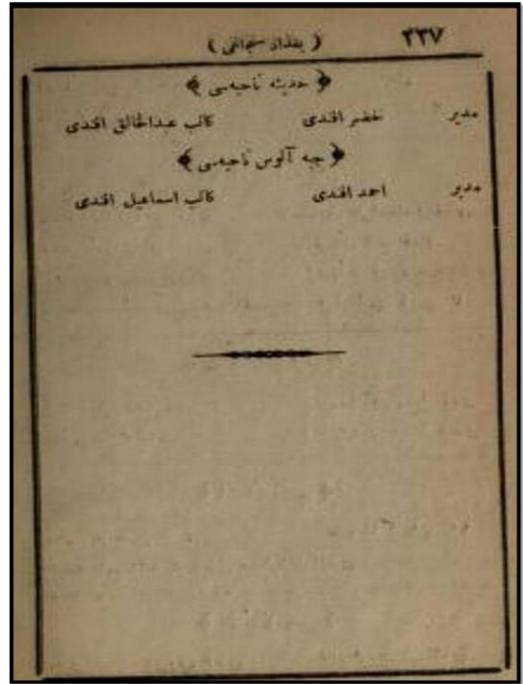 ٢٣٧ ( بغداد سنجاغى )
﴿ حديثه ناحيه‌سى ﴾
مدير خضر افندى كاتب عبدالخالق افندى
﴿ جبه آلوس ناحيه‌سى ﴾
مدير احمد افندى كاتب اسماعيل افندى